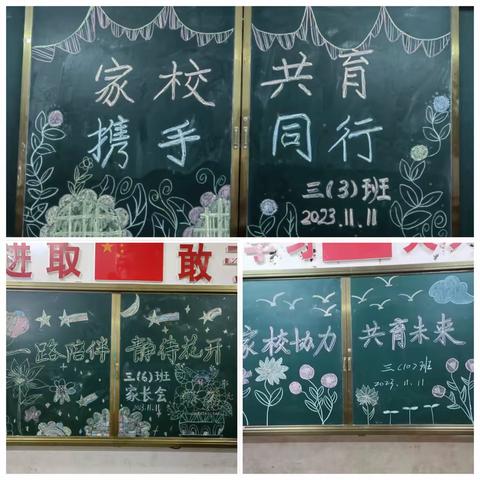 家校 共育
携手 同行
三(3)班
2023.11.11
进取 敢
一路陪伴 静待花开
三(6)班
家长会
家校协力 共育未来
三(10)班
2023.11.11